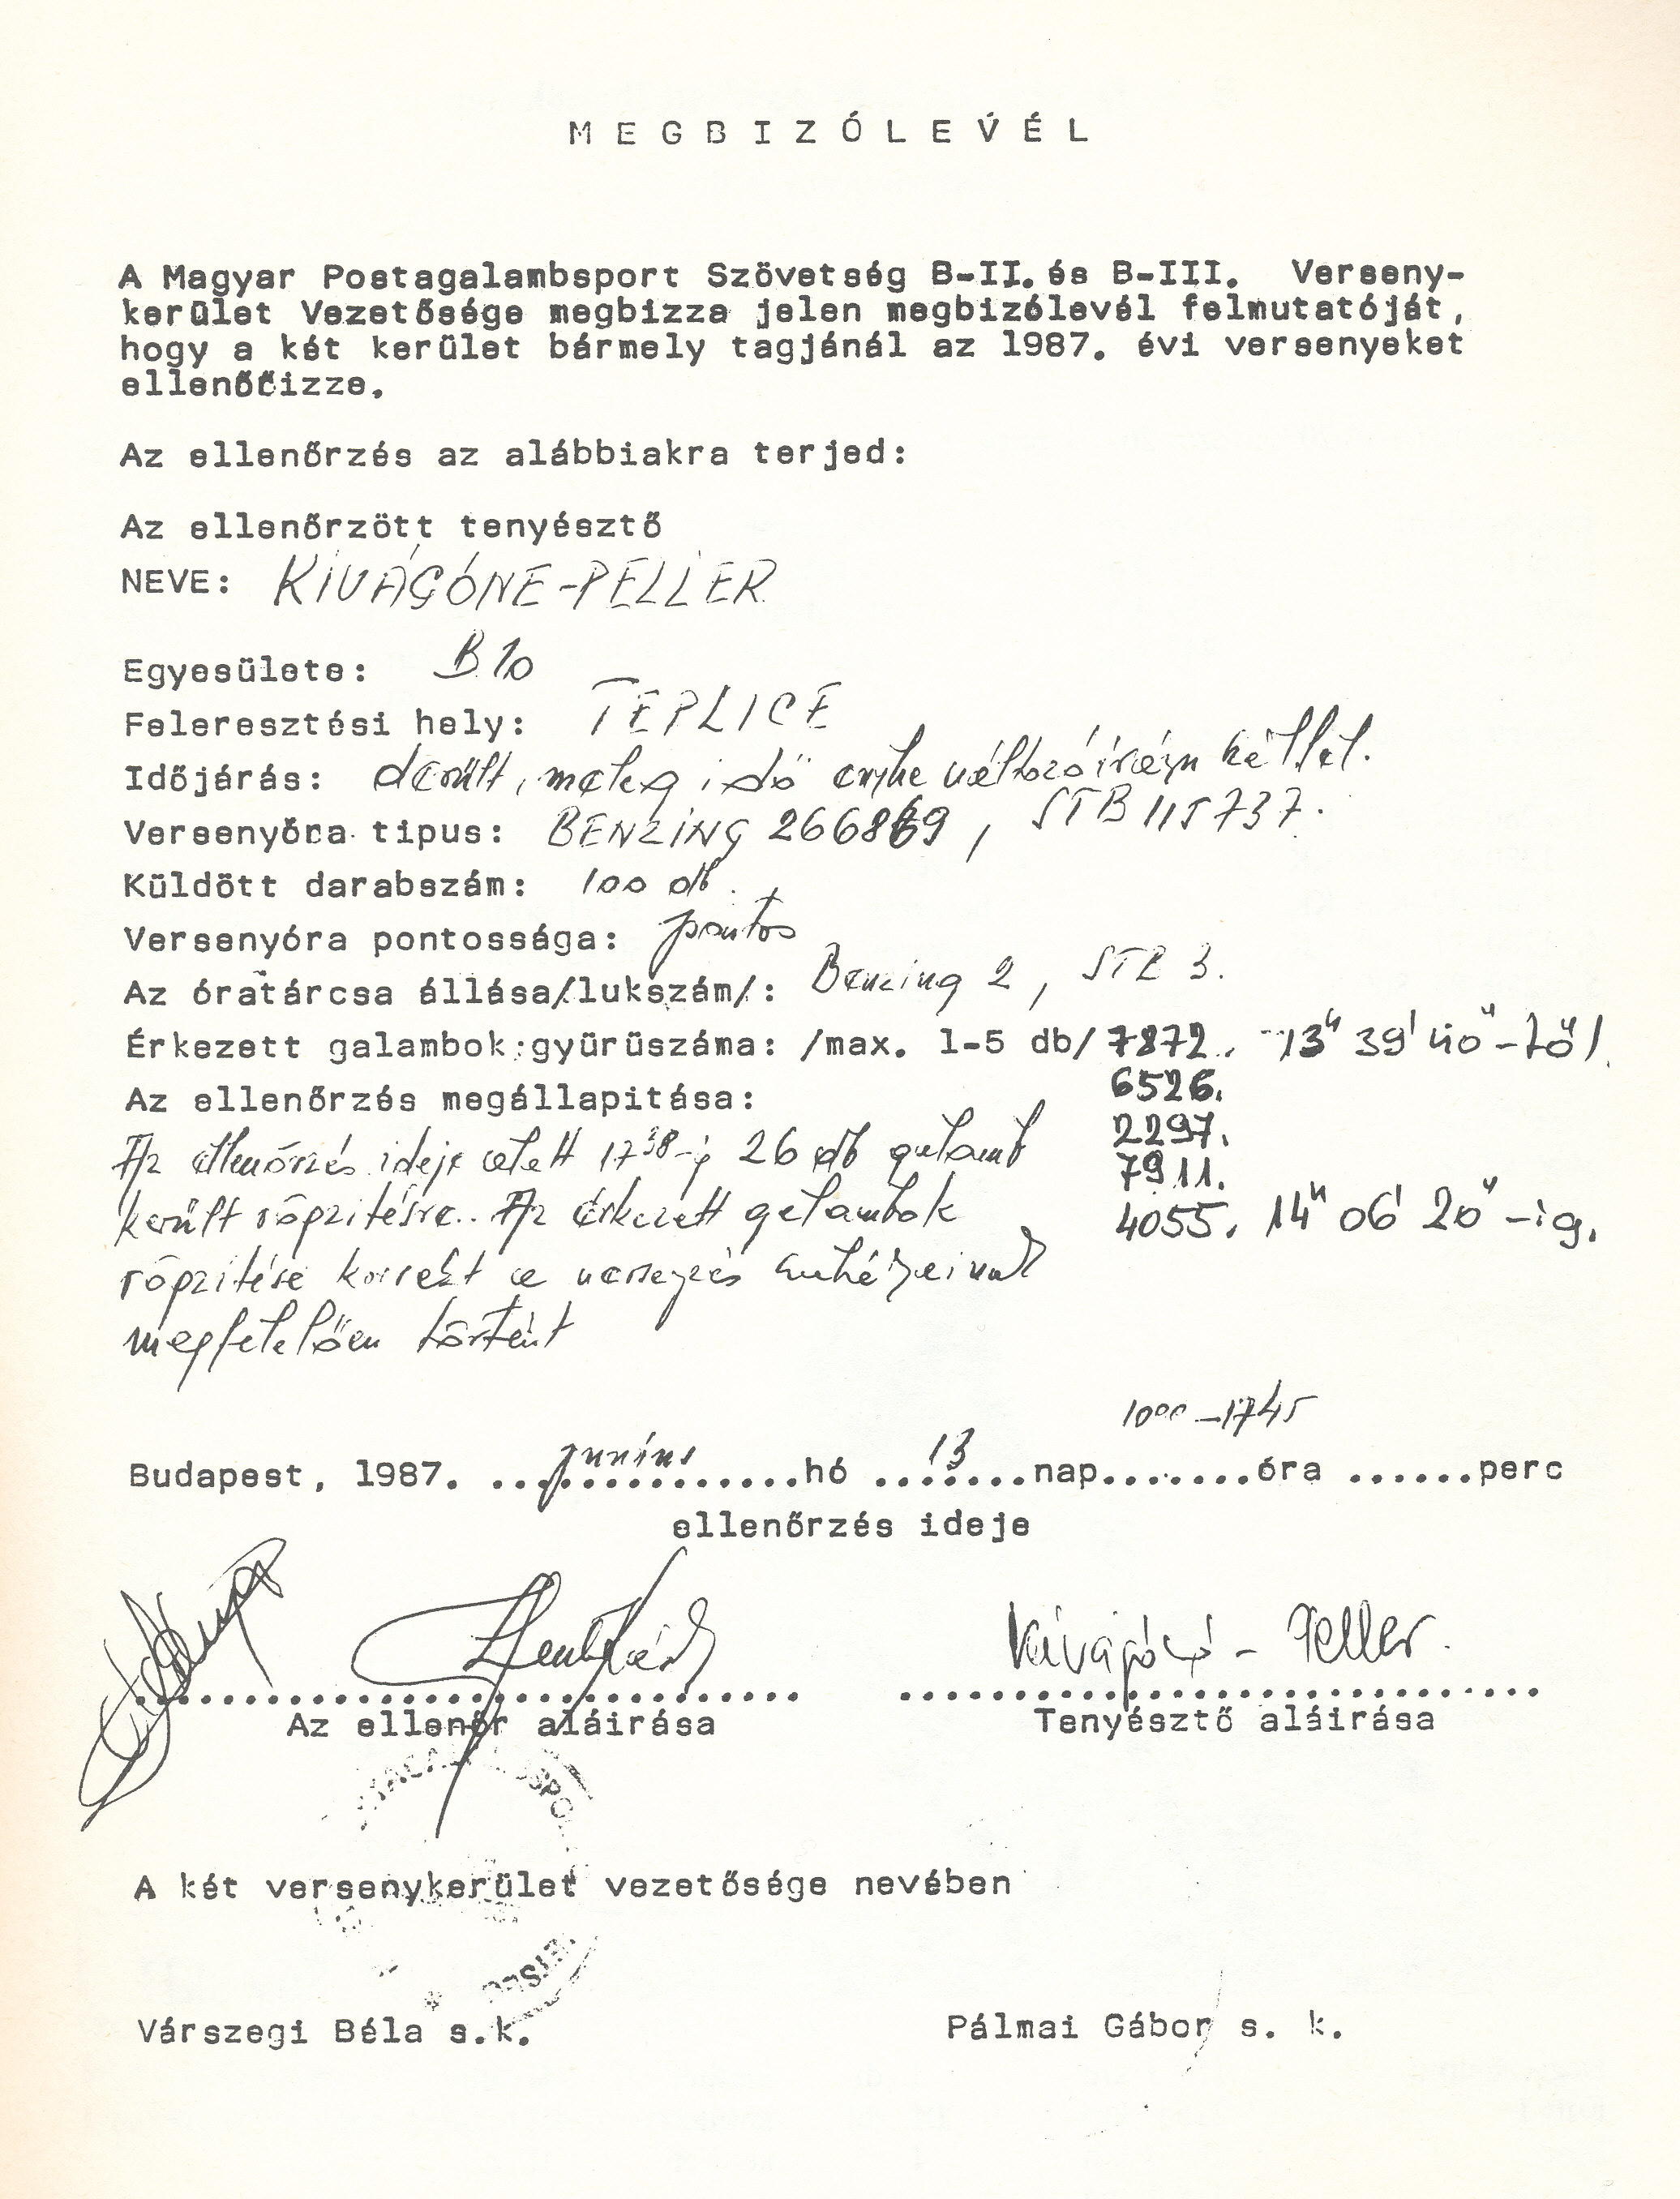 MEGBIZÓLEVÉL
A Magyar Postagalambsport Szövetség B-II. és B-III. Verseny-
kerület Vezetősége megbizza jelen megbizólevél felmutatóját,
hogy a két kerület bármely tagjánál az 1987. évi versenyeket
ellenőrizze.
Az ellenőrzés az alábbiakra terjed:
Az ellenőrzött tenyésztő
NEVE: KIVÁGÓNE-PELLER
Egyesülete: B 10
Feleresztési hely: TEPLICE
Időjárás: derült, meleg idő enyhe változóirányu széllel.
Versenyóra tipus: BENZING 266869, STB 115737.
Küldött darabszám: 100 db.
Versenyóra pontossága: pontos
Az óratárcsa állása/lukszám/: Benzing 2, STB 3.
Érkezett galambok gyürüszáma: /max. 1-5 db/ 7872. 13h 39' 40"-től
6526.
Az ellenőrzés megállapitása:
2297.
Az ellenőrzés ideje alatt 17 38-ig 26 db galamb
7911.
került röpzitésre. Az érkezett galambok
4055. 14h 06' 20"-ig.
röpzitése korrekt a versenyzés
megfelelően történt
10 00 - 17 45
Budapest, 1987. ...junius...hó ...13...nap.......óra ......perc
ellenőrzés ideje
Kivágóné - Peller.
Az ellenőr aláirása Tenyésztő aláirása
A két versenykerület vezetősége nevében
Várszegi Béla s.k. Pálmai Gábor s. k.